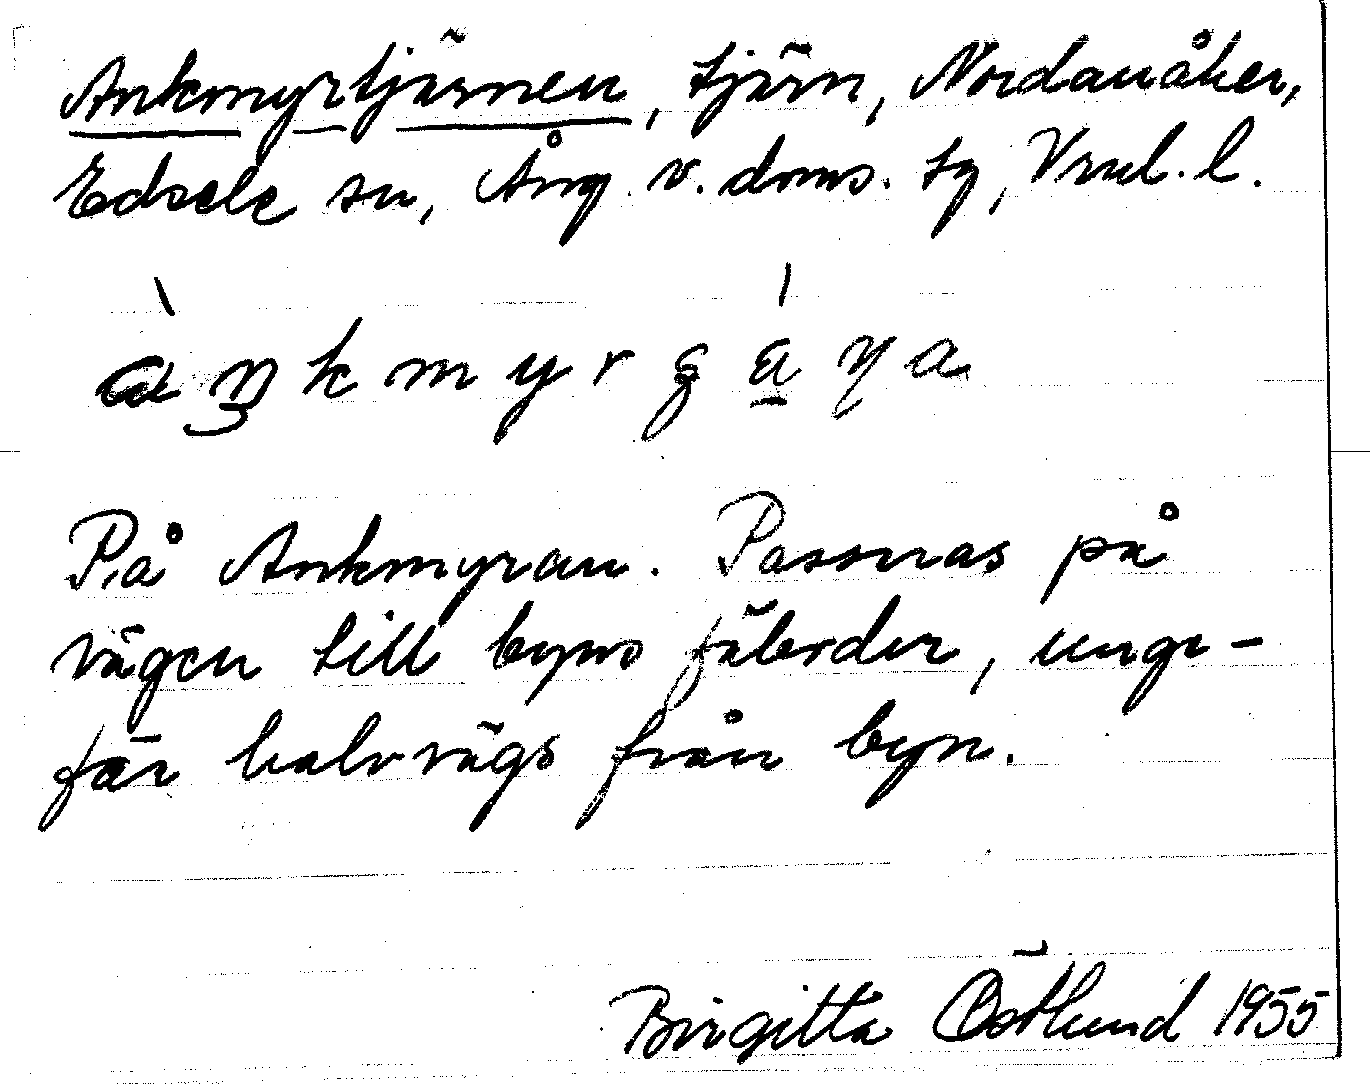 Ankmyrtjärnen, tjärn, Nordanåker,
Edsele sn, Ång. v. doms. tg, Vrnl. l.
På Ankmyran. Passeras på
vägen till byns fäbodar, unge-
fär halvvägs från byn.
Birgitta Östlund 1955